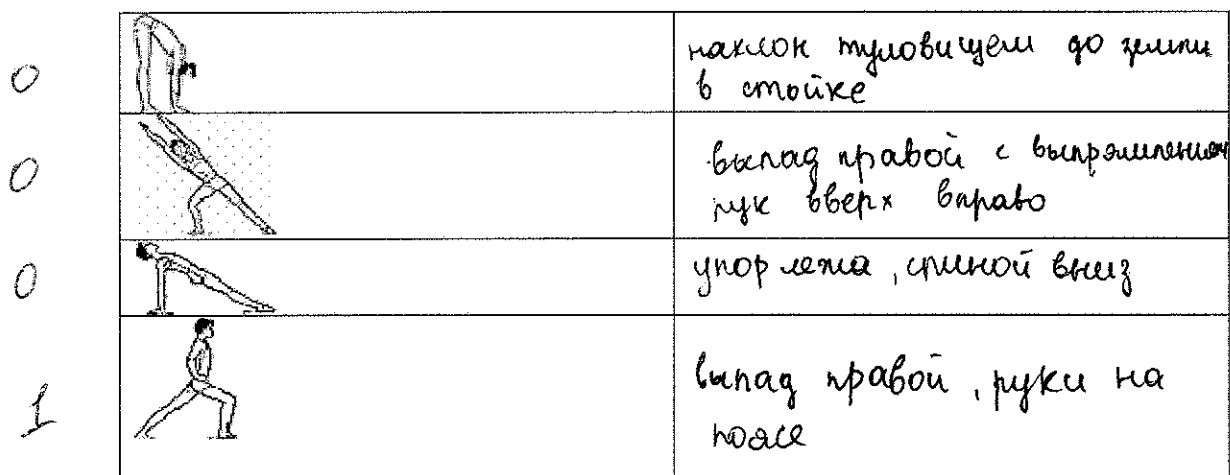 0
наклон туловищем до земли
в стойке
0
выпад правой с выпрямлением
рук вверх вправо
0
упор лежа, спиной вниз
1
выпад правой, руки на
поясе